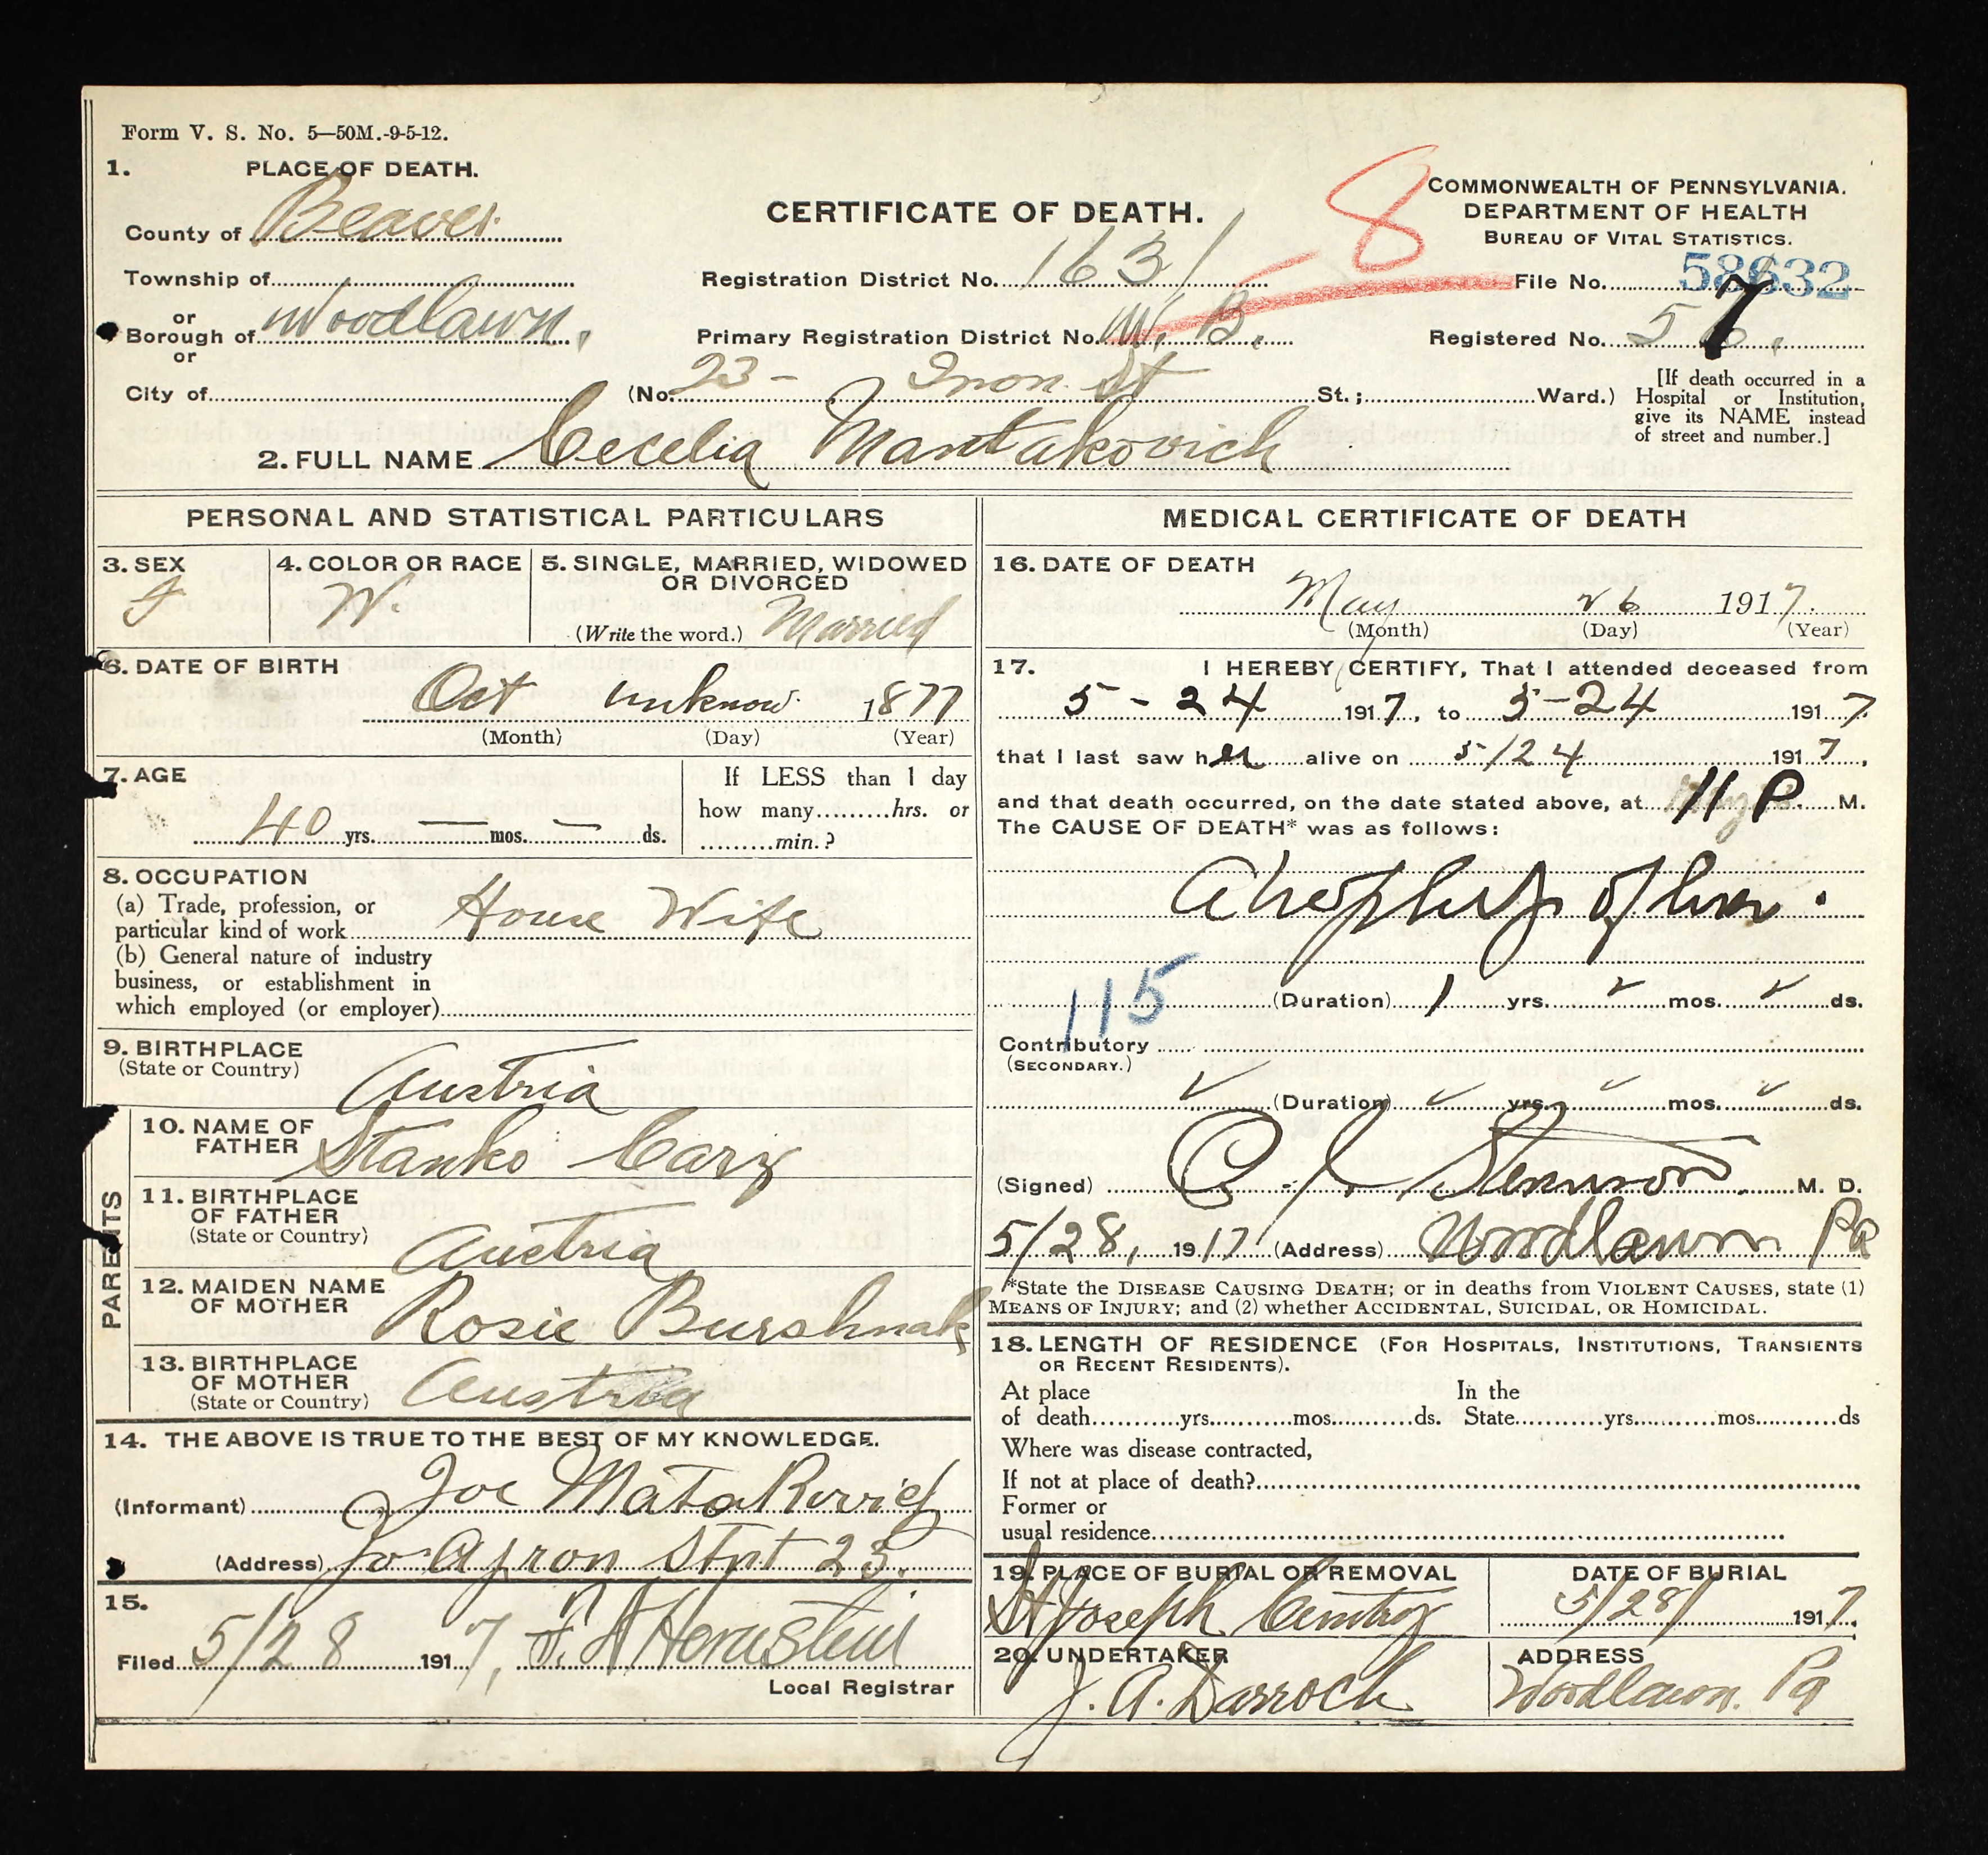 Form V. S. No. 5—50M.-9-5-12.
1. PLACE OF DEATH.
County of Beaver
Township of
or
Borough of Woodlawn.
or
City of
CERTIFICATE OF DEATH.
Registration District No. 1631
Primary Registration District No. W. B.
(No. 23 - Iron St St.; Ward.)
8
COMMONWEALTH OF PENNSYLVANIA.
DEPARTMENT OF HEALTH
BUREAU OF VITAL STATISTICS.
File No. 58632
Registered No. 57
[If death occurred in a
Hospital or Institution,
give its NAME instead
of street and number.]
2. FULL NAME Cecelia Mantakovich
PERSONAL AND STATISTICAL PARTICULARS
3. SEX
F
4. COLOR OR RACE
W
5. SINGLE, MARRIED, WIDOWED
OR DIVORCED
(Write the word.) Married
6. DATE OF BIRTH
Oct unknow 1877
(Month) (Day) (Year)
7. AGE
40 yrs. — mos. — ds.
If LESS than 1 day
how many hrs. or
min.?
8. OCCUPATION
(a) Trade, profession, or
particular kind of work House Wife
(b) General nature of industry
business, or establishment in
which employed (or employer)
9. BIRTHPLACE
(State or Country)
Austria
PARENTS
10. NAME OF
FATHER Stanko Carz
11. BIRTHPLACE
OF FATHER
(State or Country) Austria
12. MAIDEN NAME
OF MOTHER Rosie Burshnak
13. BIRTHPLACE
OF MOTHER
(State or Country) Austria
14. THE ABOVE IS TRUE TO THE BEST OF MY KNOWLEDGE.
(Informant) Joe Matakovich
(Address) Stnt 23.
15.
Filed 5/28 1917, Hornstein
Local Registrar
MEDICAL CERTIFICATE OF DEATH
16. DATE OF DEATH
May 26 1917.
(Month) (Day) (Year)
17. I HEREBY CERTIFY, That I attended deceased from
5-24 1917, to 5-24 1917
that I last saw her alive on 5/24 1917,
and that death occurred, on the date stated above, at 11 P. M.
The CAUSE OF DEATH* was as follows:
Atrophy of liver.
115
(Duration) 1 yrs. mos. ds.
Contributory
(SECONDARY.)
(Duration) yrs. mos. ds.
(Signed) M. D.
5/28, 1917 (Address) Woodlawn Pa
*State the DISEASE CAUSING DEATH; or in deaths from VIOLENT CAUSES, state (1)
MEANS OF INJURY; and (2) whether ACCIDENTAL, SUICIDAL, OR HOMICIDAL.
18. LENGTH OF RESIDENCE (FOR HOSPITALS, INSTITUTIONS, TRANSIENTS
OR RECENT RESIDENTS).
At place In the
of death yrs. mos. ds. State yrs. mos. ds
Where was disease contracted,
If not at place of death?
Former or
usual residence
19. PLACE OF BURIAL OR REMOVAL
St Joseph Cemtry
DATE OF BURIAL
5/28/ 1917.
20. UNDERTAKER
J. A. Darroch
ADDRESS
Woodlawn. Pa